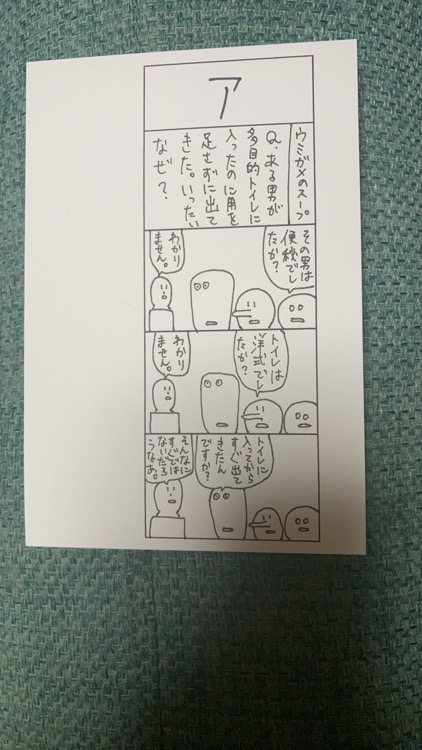 ア
ウミガメのスープ
Q.ある男が
多目的トイレに
入ったのに用を
足さずに出て
きた。いったい
なぜ?
その男は
便秘でし
たか?
わかり
ません。
トイレは
洋式でし
たか?
わかり
ません。
トイレに
入ってから
すぐ出て
きたん
ですか?
そんなに
すぐでは
ないだろ
うなあ。